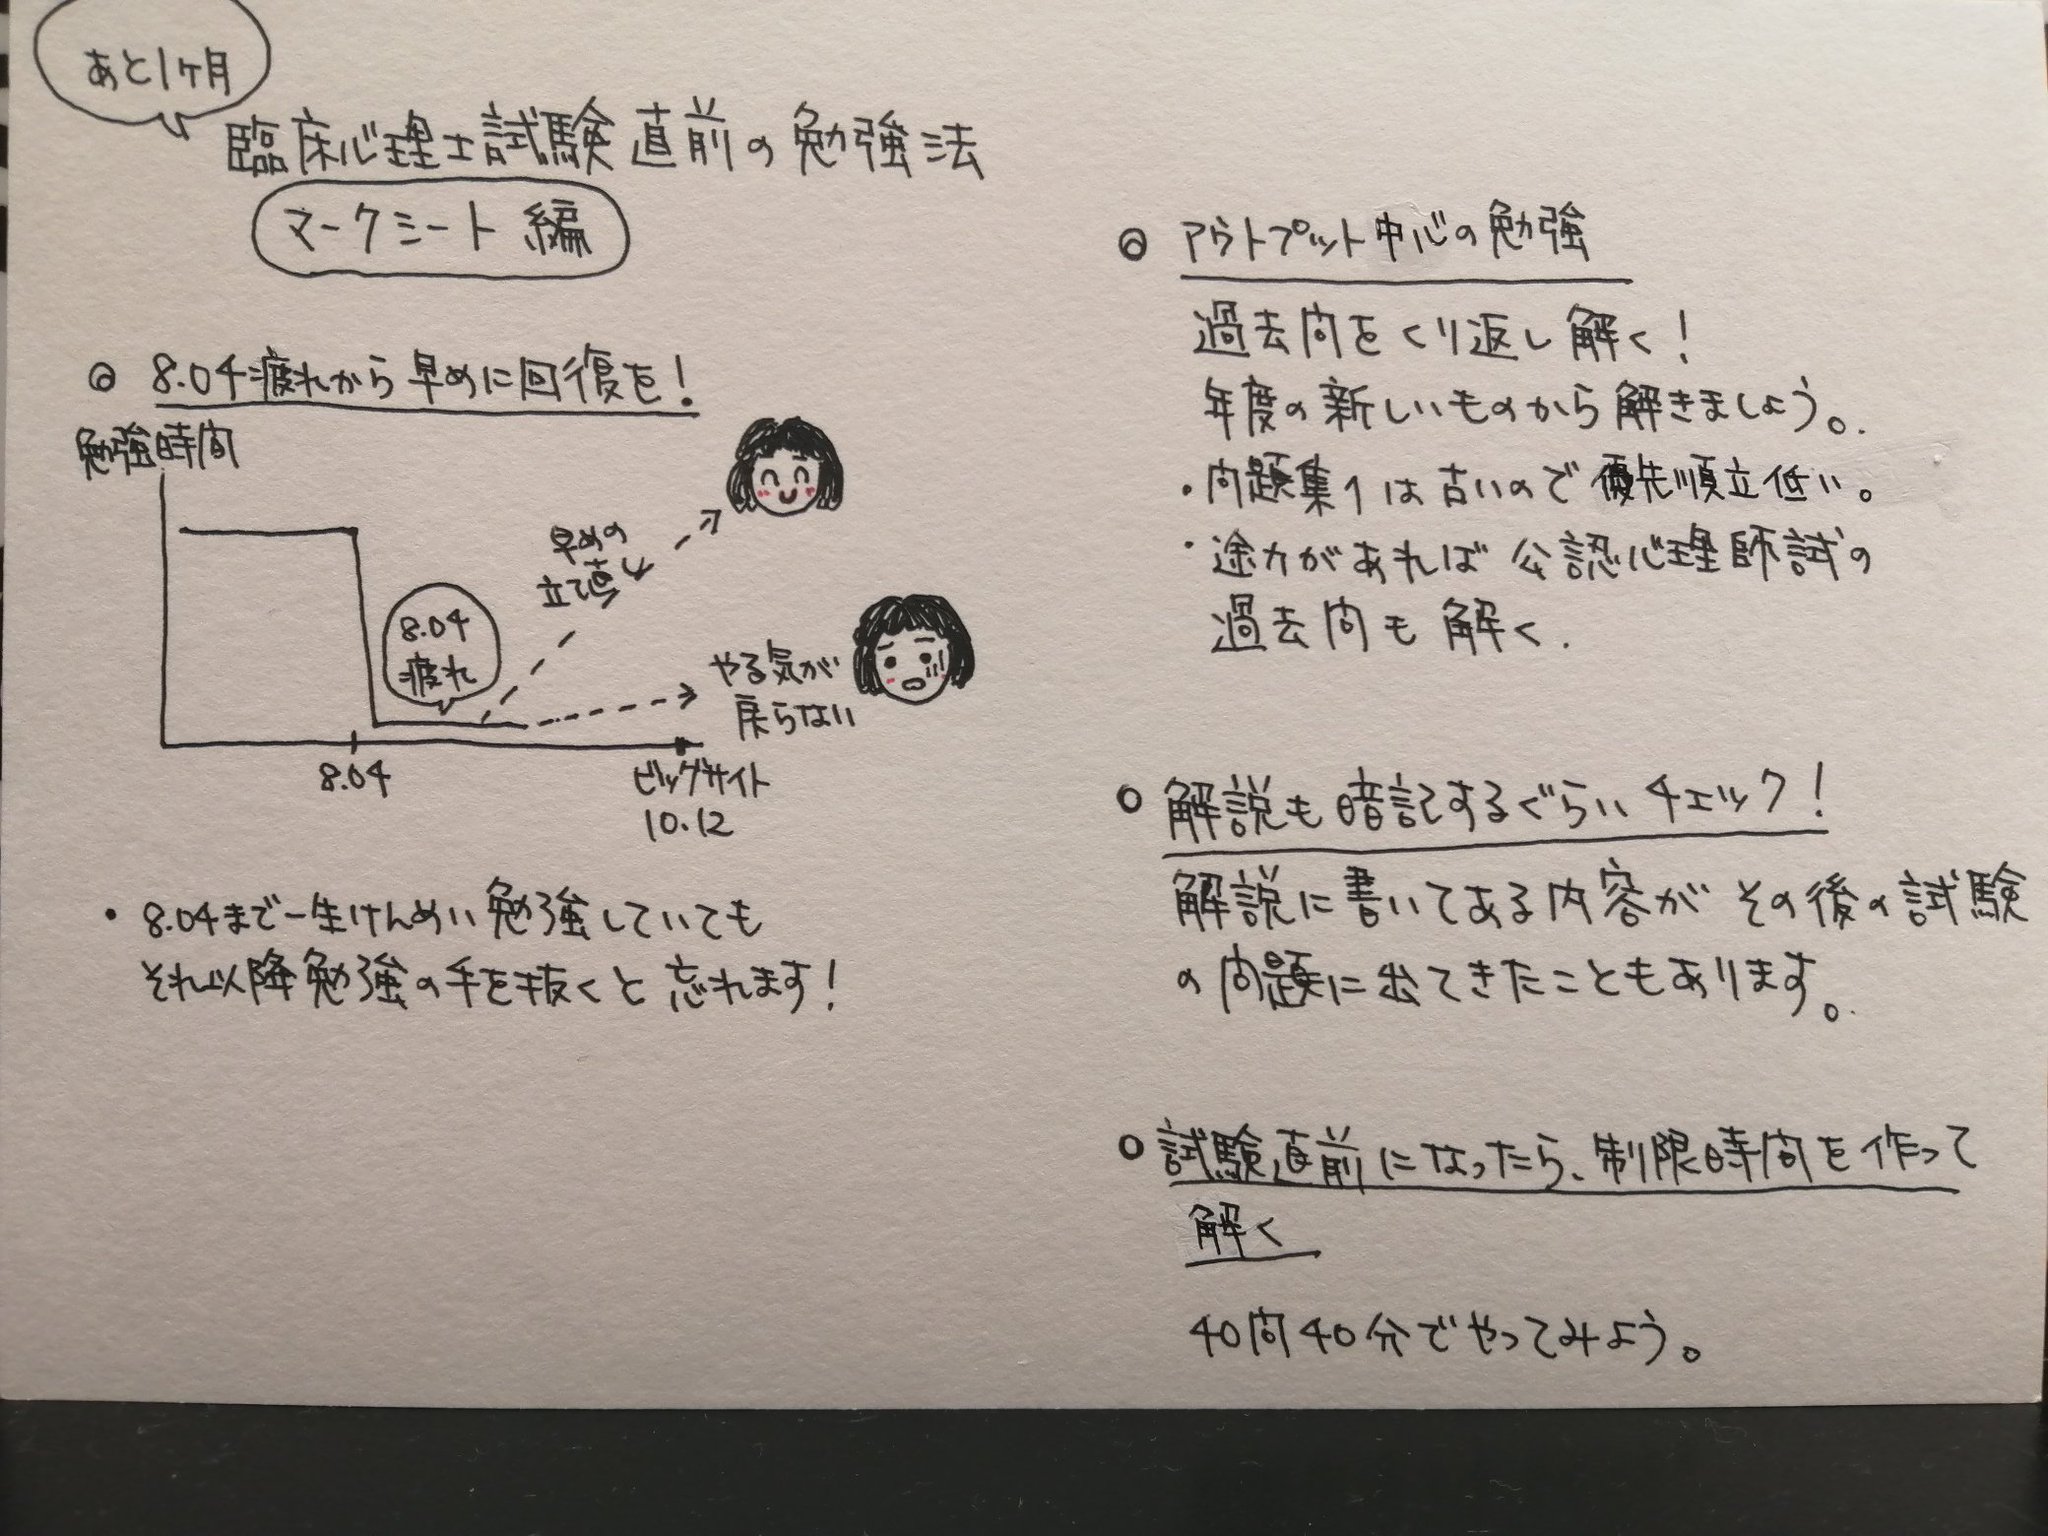 あと1ヶ月
臨床心理士試験直前の勉強法
マークシート編
◎ 8.04疲れから早めに回復を!
勉強時間
早めの
立て直し
8.04
疲れ
やる気が
戻らない
8.04
ビッグサイト
10.12
・8.04まで一生けんめい勉強していても
それ以降勉強の手を抜くと忘れます!
◎ アウトプット中心の勉強
過去問をくり返し解く!
年度の新しいものから解きましょう。
・問題集1は古いので優先順位低い。
・途力があれば公認心理師試の
過去問も解く.
○ 解説も暗記するぐらいチェック!
解説に書いてある内容がその後の試験
の問題に出てきたこともあります。
○ 試験直前になったら、制限時間を作って
解く
40問40分でやってみよう。